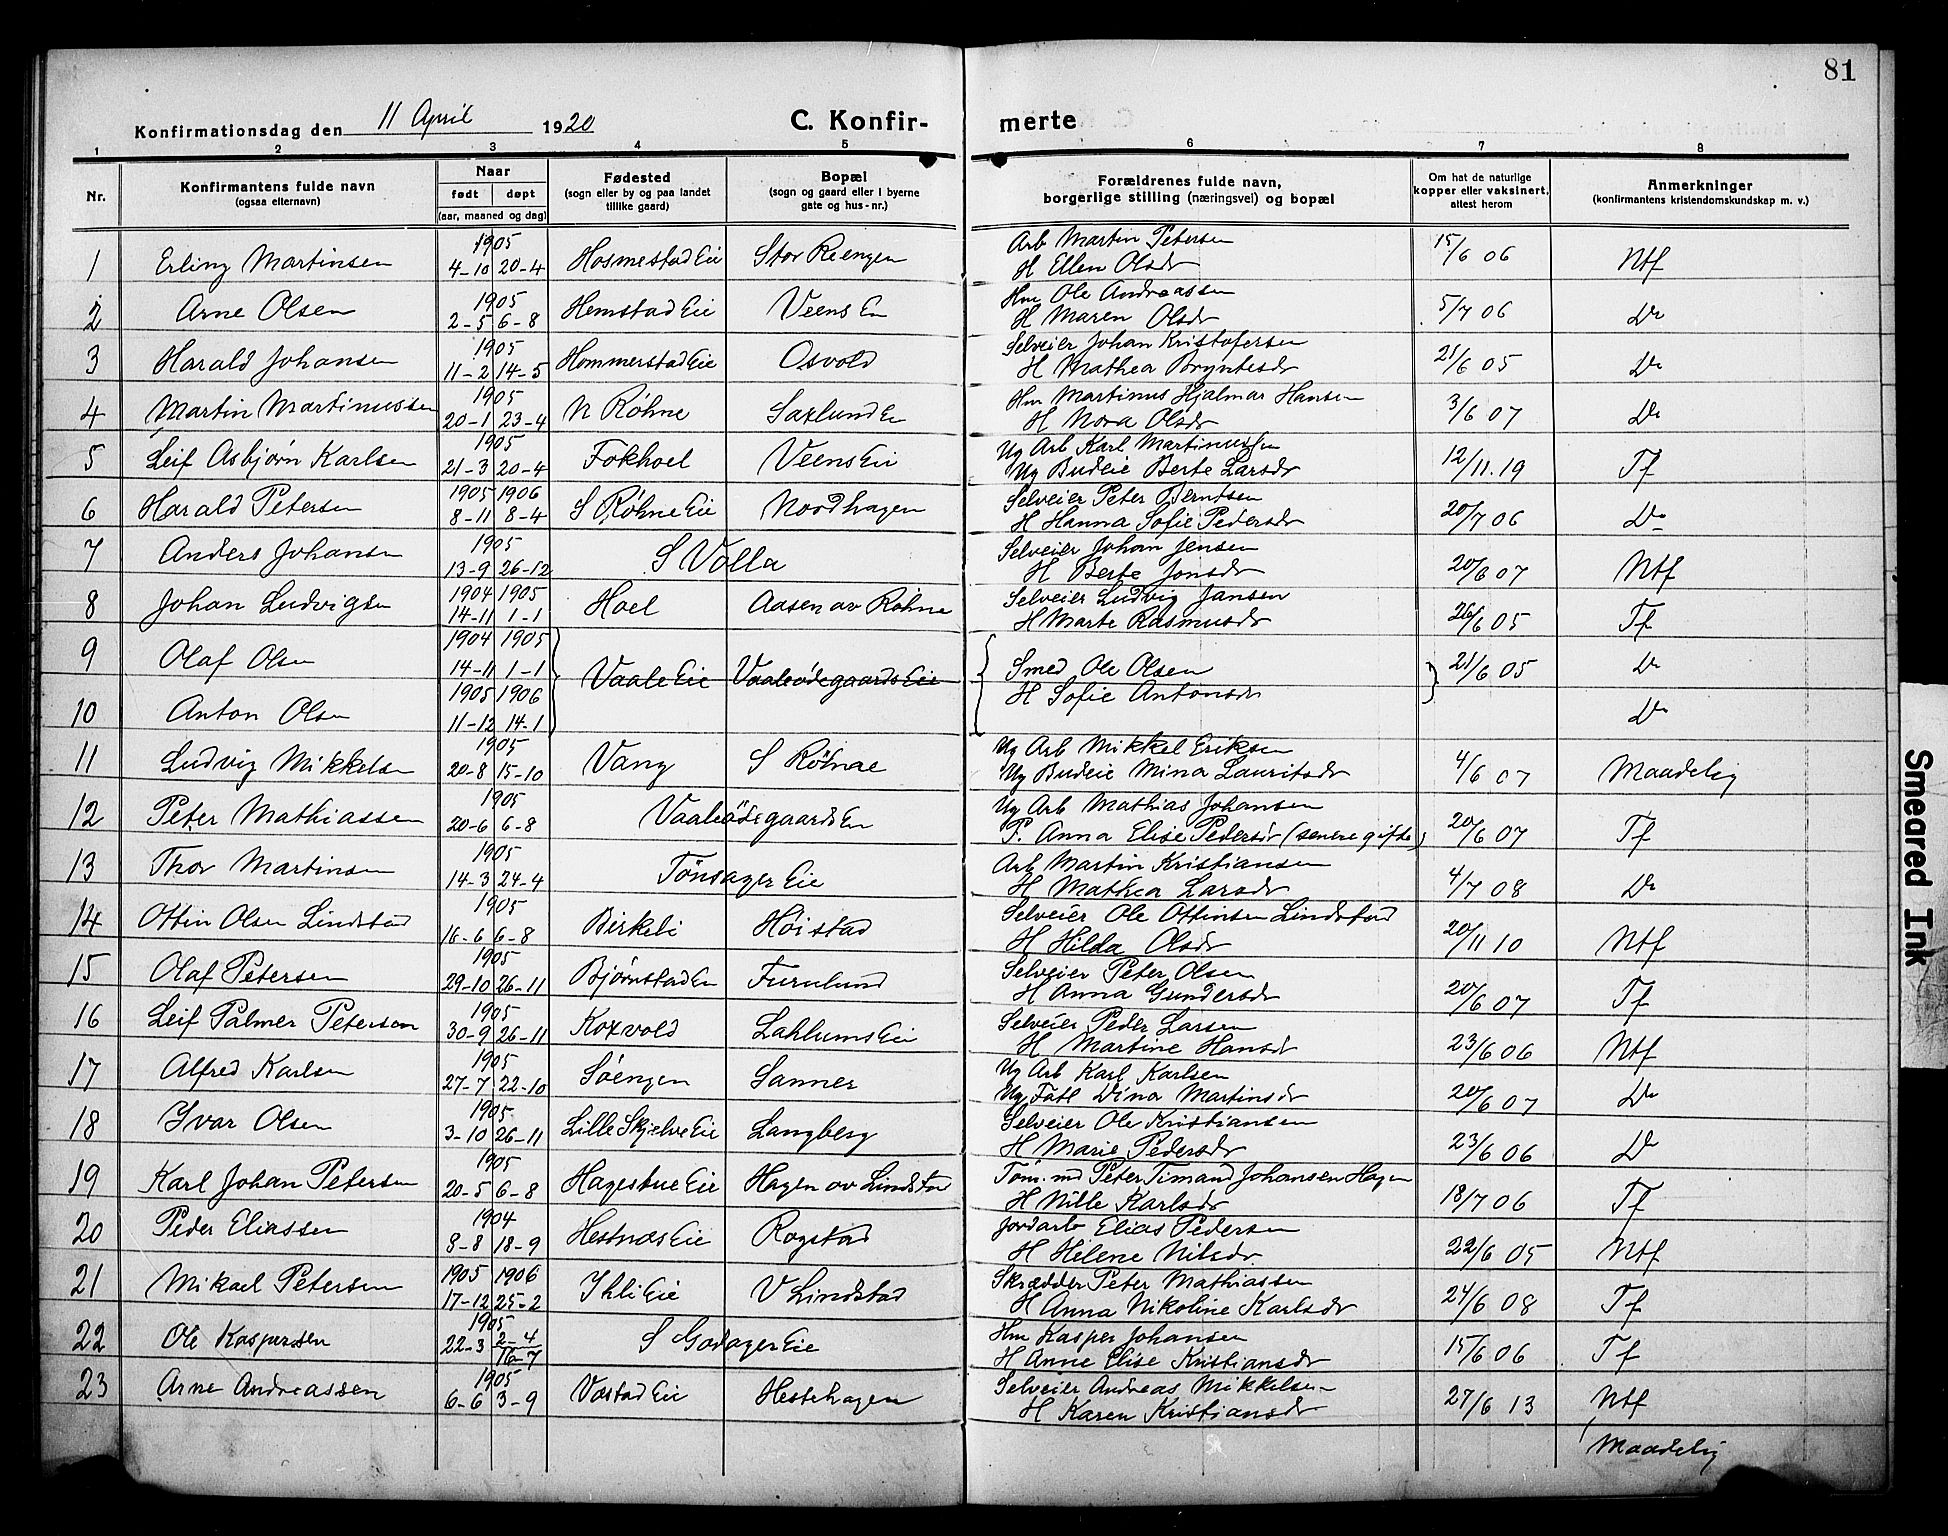 81
Konfirmationsdag den 11 April 1920 C. Konfir- merte
1 2 3 4 5 6 7 8
Nr.
Konfirmantens fulde navn
(ogsaa efternavn)
Naar
født døpt
(aar, maaned og dag)
Fødested
(sogn eller by og paa landet
tillike gaard)
Bopæl
(sogn og gaard eller i byerne
gate og hus-nr.)
Forældrenes fulde navn,
borgerlige stilling (næringsvei) og bopæl
Om hat de naturlige
kopper eller vaksinert,
attest herom
Anmerkninger
(konfirmantens kristendomskundskap m. v.)
1905 Arb Martin Petersen
1 Erling Martinsen 4-10 20-4 Hosmestad Eie Stor Reengen H Ellen Olsdr 15/6 06 Ntf
1905 Hm Ole Andreassen
2 Arne Olsen 2-5 6-8 Hemstad Eie Veens Eie H Maren Olsdr 5/7 06 Do
1905 Selveier Johan Kristofersen
3 Harald Johansen 11-2 14-5 Hommerstad Eie Osvold H Mathea Bryntesdr 21/6 05 Do
1905 Hm Martinus Hjalmar Hansen
4 Martin Martinussen 20-1 23-4 N Røhne Saxlund Eie H Nora Olsdr 3/6 07 Do
1905 Ug Arb Karl Martinussen
5 Leif Asbjørn Karlsen 21-3 20-4 Fokhoel Veens Eie Ug Budeie Berte Larsdr 12/11.19 Tf
1905 1906 Selveier Peter Berntsen
6 Harald Petersen 8-11 8-4 S Røhne Eie Nordhagen H Hanna Sofie Pedersdr 20/7 06 Do
1905 Selveier Johan Jensen
7 Anders Johansen 13-9 26-12 S Volla H Berte Jonsdr 20/6 07 Ntf
1904 1905 Selveier Ludvig Jansen
8 Johan Ludvigsen 14-11 1-1 Hoel Aasen av Røhne H Marte Rasmusdr 26/6 05 Tf
1904 1905
9 Olaf Olsen 14-11 1-1 Vaale Eie Vaaleødegaards Eie Smed Ole Olsen 21/6 05 Do
1905 1906 H Sofie Antonsdr
10 Anton Olsen 11-12 14-1 Do
1905 Ug Arb Mikkel Eriksen
11 Ludvig Mikkelsen 20-8 15-10 Vang S Røhnae Ug Budeie Mina Lauritsdr 4/6 07 Maadelig
1905 Ug Arb Mathias Johansen
12 Peter Mathiassen 20-6 6-8 Vaaleødegaards Eie P. Anna Elise Pedersdr (senere gifte) 20/6 07 Tf
1905 Arb Martin Kristiansen
13 Thor Martinsen 14-3 24-4 Tønsager Eie H Mathea Larsdr 4/7 08 Do
1905 Selveier Ole Ottinsen Lindstad
14 Ottin Olsen Lindstad 16-6 6-8 Birkeli Høistad H Hilda Olsdr 20/11 10 Ntf
1905 Selveier Peter Olsen
15 Olaf Petersen 29-10 26-11 Bjørnstad Eie Furulund H Anna Gundersdr 20/6 07 Tf
1905 Selveier Peder Larsen
16 Leif Palmer Petersen 30-9 26-11 Koxvold Lahlums Eie H Martine Hansdr 23/6 06 Ntf
1905 Ug Arb Karl Karlsen
17 Alfred Karlsen 27-7 22-10 Søengen Sanner Ug Fatl Dina Martinsdr 20/6 07 Do
1905 Selveier Ole Kristiansen
18 Yvar Olsen 3-10 26-11 Lille Skjelve Eie Langberg H Marie Pedersdr 23/6 06 Do
1905 Tøm.md Peter Timand Johansen Hagen
19 Karl Johan Petersen 20-5 6-8 Hagestue Eie Hagen av Lindstad H Nille Karlsdr 18/7 06 Tf
1904 Jordarb Elias Pedersen
20 Peder Eliassen 8-8 18-9 Hestnæs Eie Rogstad H Helene Nilsdr 22/6 05 Ntf
1905 1906 Skrædder Peter Mathiassen
21 Mikael Petersen 17-12 25-2 Ihli Eie V Lindstad H Anna Nikoline Karlsdr 24/6 08 Tf
1905 Hm Kasper Johansen
22 Ole Kaspersen 22-3 2-4 16-7 S Godager Eie H Anne Elise Kristiansdr 15/6 06 Tf
1905 Selveier Andreas Mikkelsen
23 Arne Andreassen 6-6 3-9 Vestad Eie Hestehagen H Karen Kristiansdr 27/6 13 Ntf
Maadelig
Smeared Ink